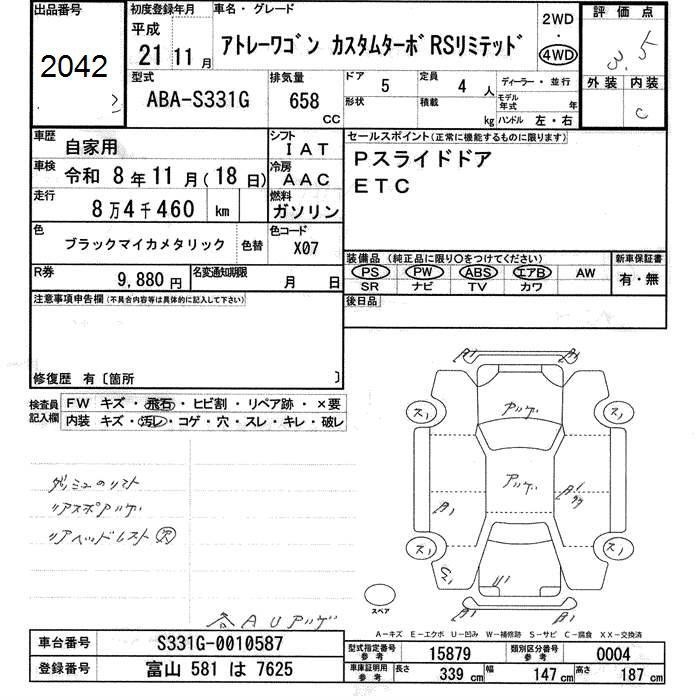 出品番号
2042
初度登録年月
平成
21 11 月
車名・グレード
アトレーワゴン カスタムターボ RSリミテッド
2WD
・
4WD
評価点
3.5
外装 内装
C
型式
ABA-S331G
排気量
658
CC
ドア 5
形状
定員 4 人
積載 kg
ディーラー・並行
モデル年式 年
ハンドル 左・右
車歴 自家用
車検 令和 8 年 11 月 ( 18 日)
走行 8 万 4 千 460 km
シフト IAT
冷房 AAC
燃料 ガソリン
色 ブラックマイカメタリック 色替
色コード X07
R券 9,880 円
名変通知期限 月 日
セールスポイント(正常に機能するものに限ります)
Pスライドドア
ETC
装備品 (純正品に限り○をつけてください)
PS PW ABS エアB AW
SR ナビ TV カワ
新車保証書
有・無
後日品
注意事項申告欄(不具合内容等は具体的に記入して下さい)
修復歴 有〔箇所 〕
検査員記入欄
FW キズ・飛石・ヒビ割・リペア跡・×要
内装 キズ・汚レ・コゲ・穴・スレ・キレ・破レ
リアスポアリゲ
リアヘッドレスト
A1 A1
アリゲ
スノ スノ
アリゲ
A1 A1
スノ スノ
U1
A1 A1
スペア
AUアリゲ
A-キズ E-エクボ U-凹み W-補修跡 S-サビ C-腐食 XX-交換済
車台番号 S331G-0010587
登録番号 富山 581 は 7625
型式指定番号参考 15879
類別区分番号参考 0004
車庫証明用参考 長さ 339 cm 幅 147 cm 高さ 187 cm